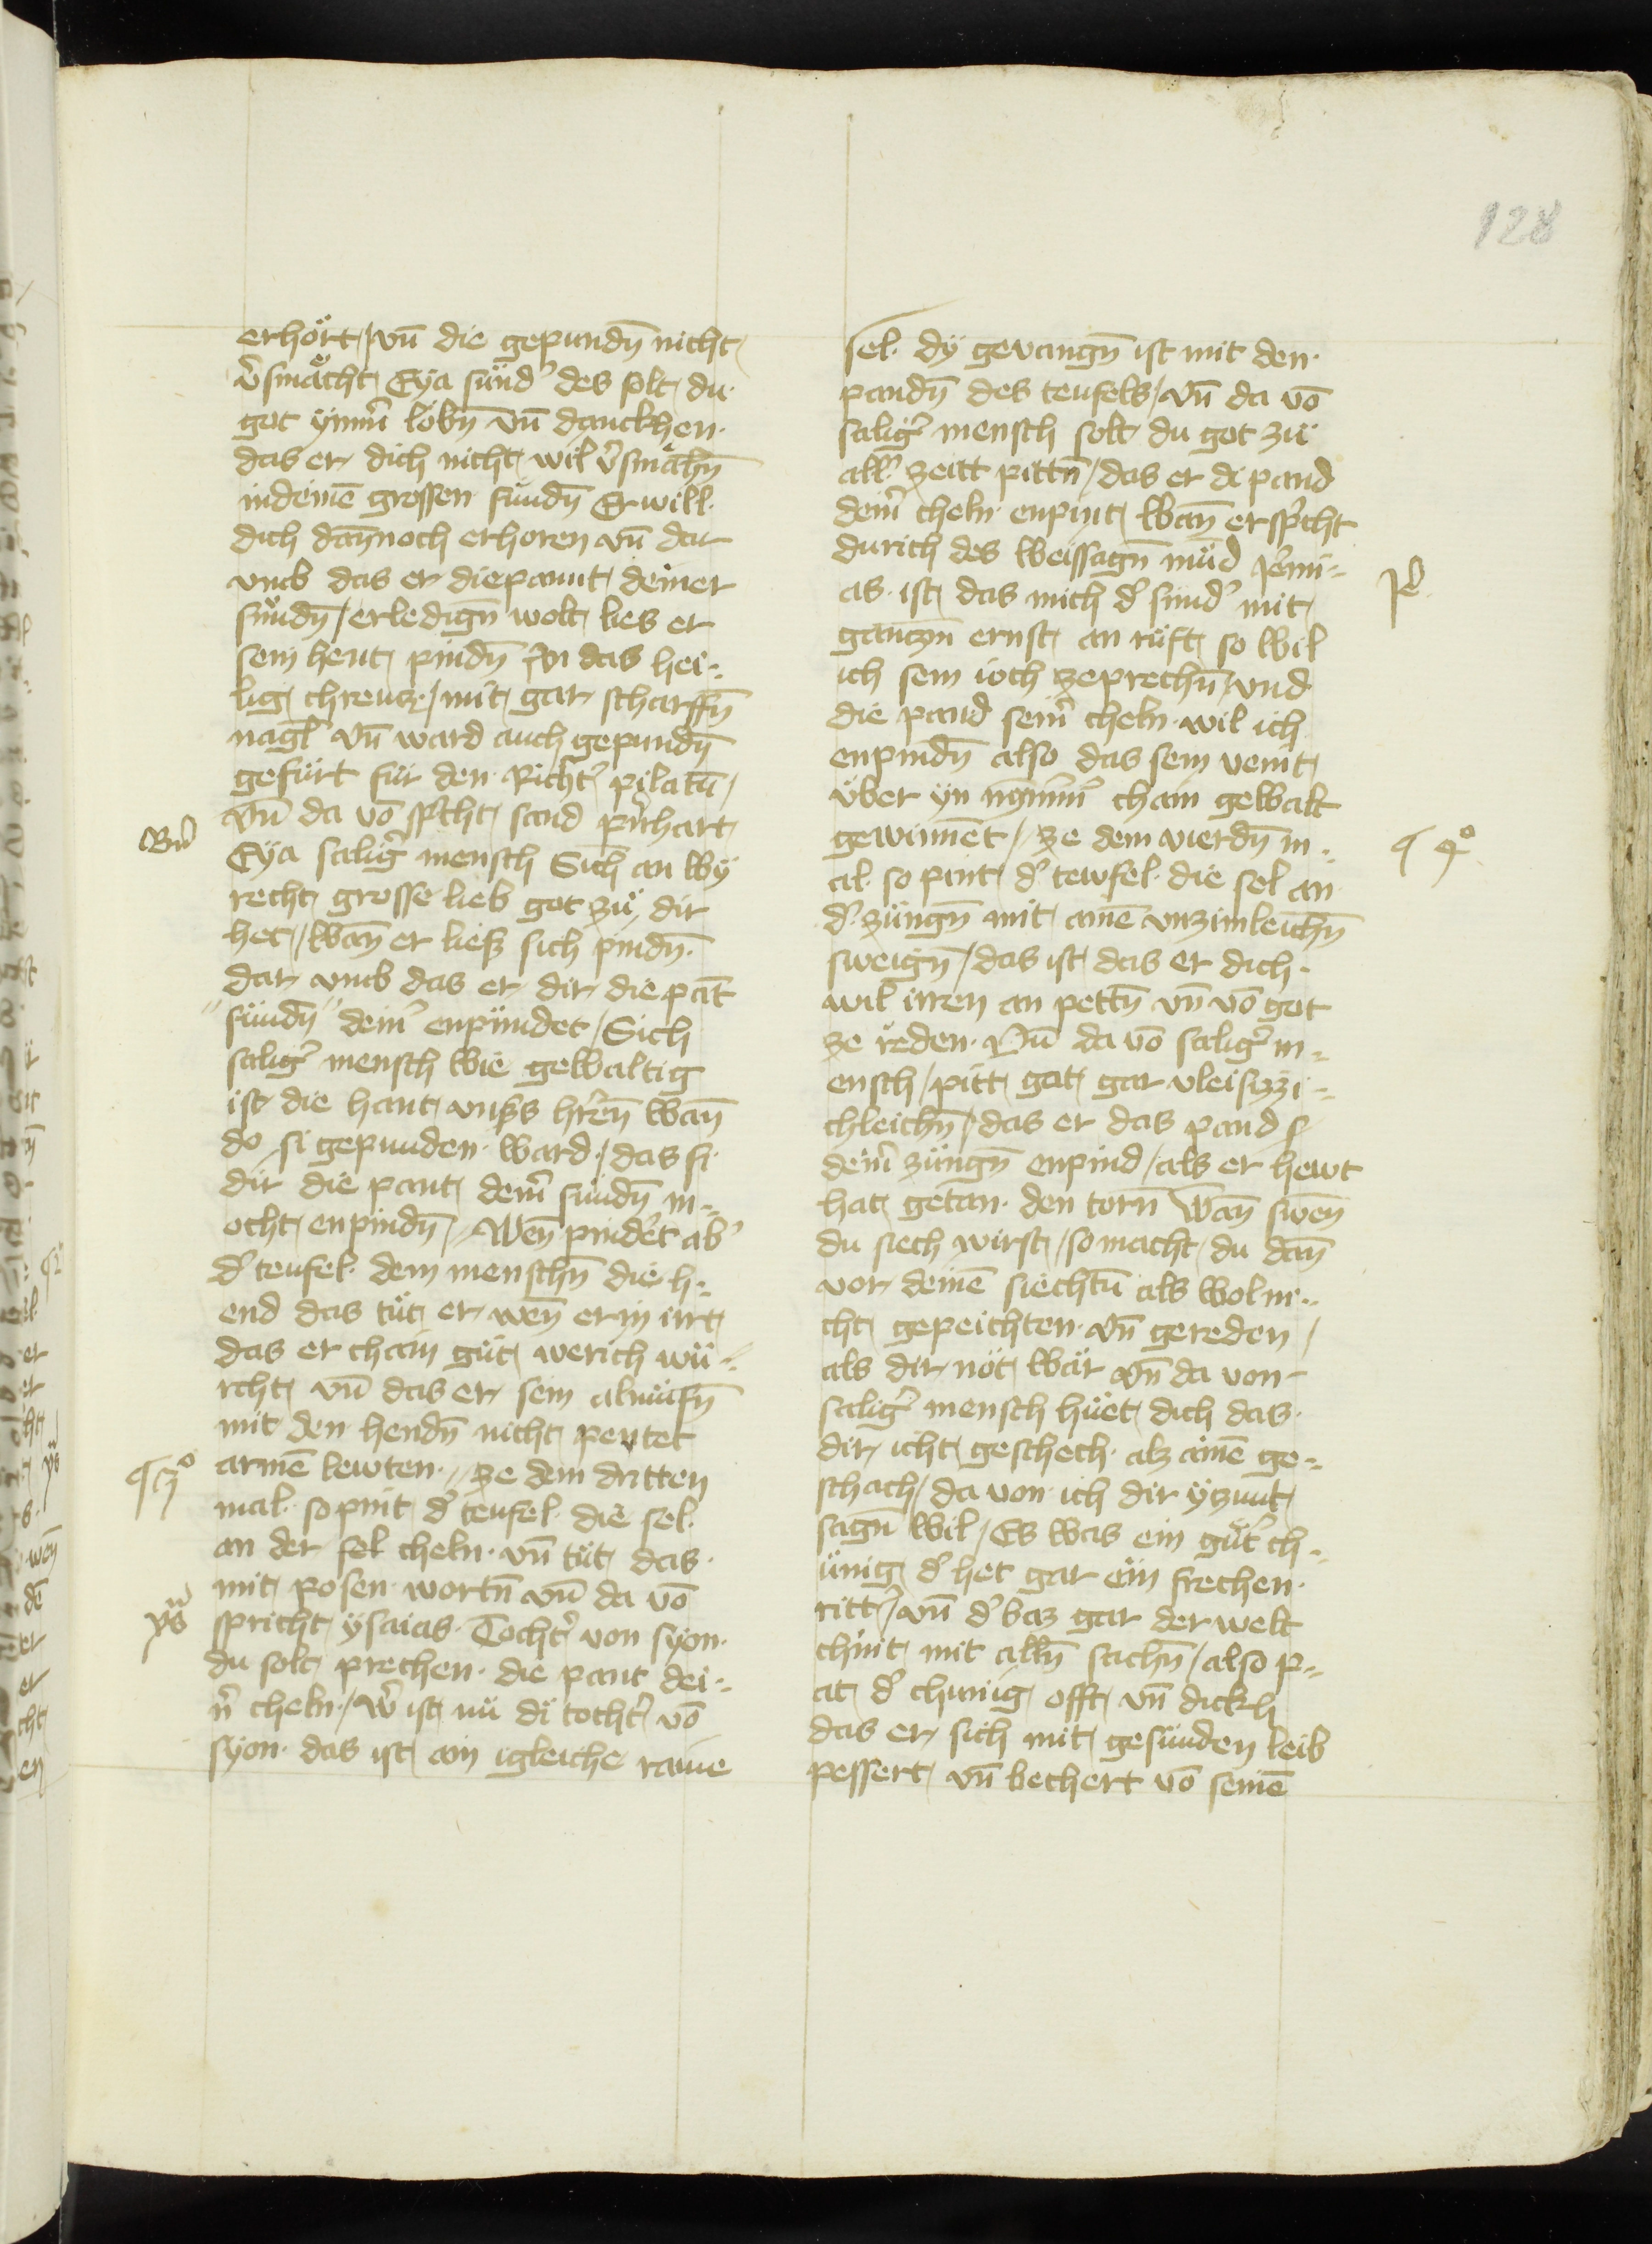 128
erhört / vn̄ die gepundn̄ nicht
v̄smächt Eÿa sünd' des solt du
got ÿmm̄ lobn̄ vn̄ danckhen
das er dich nicht wil v̄smähn̄
in deinē grossen sündn̄ Er will
dich dan̄noch erhoren vn̄ dar
vmb das er die pannt deiner
sündn̄ / erledign̄ wolt lies er
sein hent pindn̄ an das hei-
lig chreucz / mit gar scharffn̄
nagl̄ vn̄ ward auch gepundn̄
gefürt für den Richt' pilatū
vn̄ da vō spricht sand p̄nhart
Bn̄
Eÿa salig' mensch Sich an wÿ
recht grosse lieb got zü dir
het / wan̄ er liesz sich pindn̄
dar vmb das er dir die pāt
sündn̄ dein' enpündet / Sich
salig' mensch wie gewaltig
ist die hant vns̄s hr̄en̄ wan̄
do si gepunden ward / das si
dir die pant dein̄ sündn̄ m-
ocht enpindn̄ // Wen̄ pindet ab'
d' teufel dem menschn̄ die h-
end das tüt er wen̄ er in irrt
das er chain güt werich wü-
rcht vn̄ das er sein almüsn̄
mit den hendn̄ nicht peutet
armē lewten // ze dem dritten
¶ 3º
mal so pint d' teufel die sel
an der sel cheln vn̄ tüt das
mit posen wortn̄ vn̄ da vō
spricht ÿsaias Tocht' von sÿon
ÿs
du solt prechen die pant dei-
n' cheln / w' ist nü di tocht' vō
sÿon das ist ain igleiche raine
sel dÿ gevangn̄ ist mit den
pandn̄ des teufels / vn̄ da vō
salig' mensch solt du got zü
all' zeitt pittn̄ / das er di pand
dein̄ cheln enpint wan̄ er sp̄cht
durich des weissagn̄ mūd Jer̄mi-
Je
as ist das mich d' sünd' mit
ganczm̄ ernst an rüft so wil
ich sein ioch zeprechn̄ / vnd
die pand sein̄ cheln wil ich
enpindn̄ also das sein veint
über ÿn nÿmm̄' chain gewalt
gewinnēt // ze dem vierdn̄ m-
¶ 4º
al so pint d' tewfel die sel an
d' züngn̄ mit ainē vnzimleichn̄
sweign̄ / das ist das er dich
wil irren an pettn̄ vn̄ vō got
ze reden Nū da vō salig' m-
ensch / pitt got gar vleiszzi-
chleichn̄ / das er das pand
dein̄ züngn̄ enpind / als er hewt
hat getan den torn̄ wan̄ swen̄
du siech wirst / so macht du dan̄
vor deinē siechtū als wol ni-
cht gepeichten vn̄ gereden /
als dir nöt wär vn̄ da von
salig' mensch hüet dich das
dir icht geschech alz ainē ge-
schach / da von ich dir ÿzunt
sagn̄ wil / Es was ein güt' ch-
ünig d' het gar ein frechen
ritt' / vn̄ d' baz gar der welt
chint mit alln̄ sachn̄ / also p-
at d' chunig offt vn̄ dickh
das er sich mit gesunden leib
pessert vn̄ bechert vō seinē